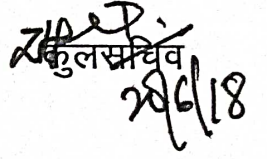 कुलसचिव
28/6/18